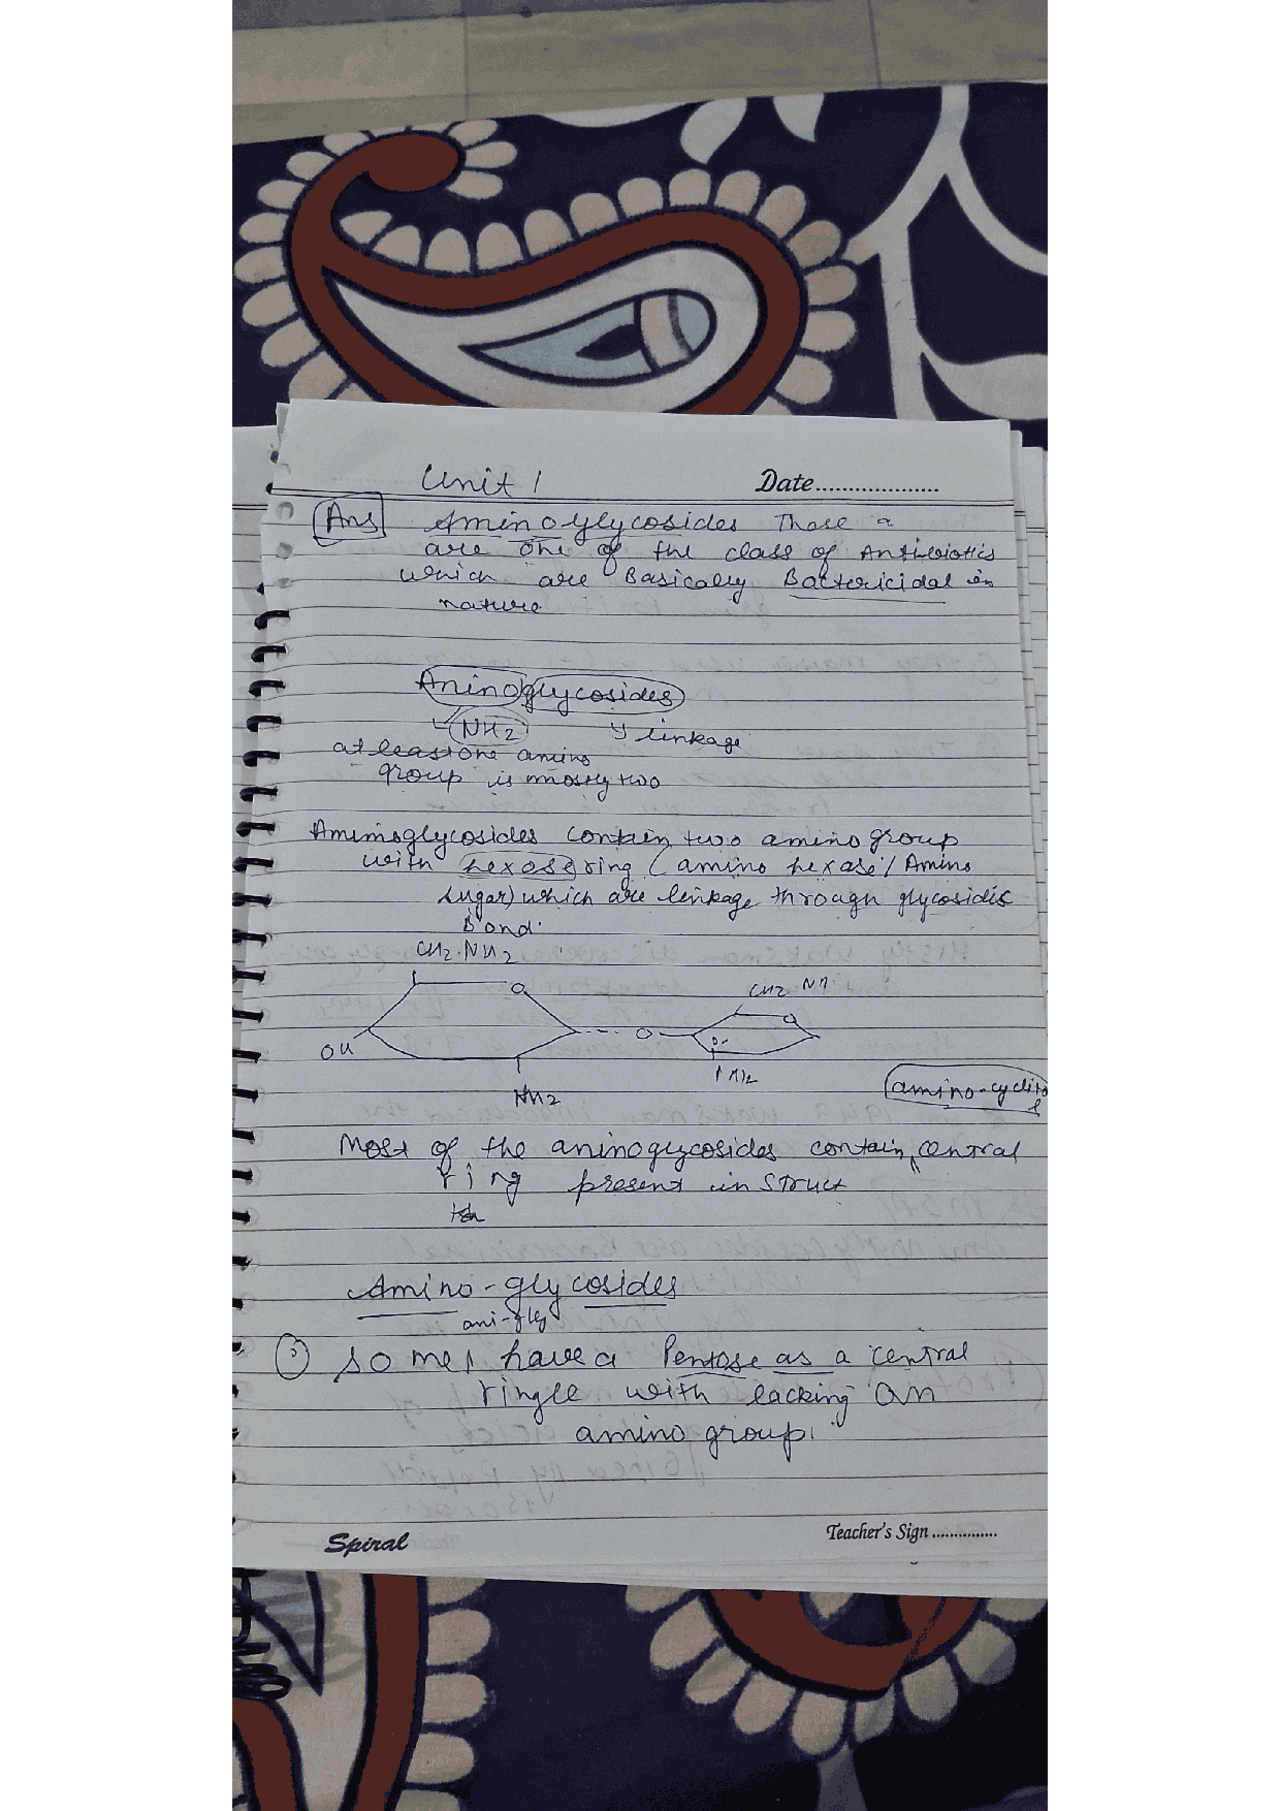 Unit 1
Date....................
Ans Aminoglycosides These a
are one of the class of Antibiotics
which are Basically Bactericidal in
nature
Aminoglycosides
NH2 linkage
at least one amino
group is mostly two
Aminoglycosides contain two amino group
with hexose ring (amino hexose / Amino
sugar) which are linkage through glycosidic
Bond.
CH2.NH2
O
CH2 NH
O
OH
O
NH2
NH2
amino-cyclito
l
Most of the aminoglycosides contain, central
ring present in struct
Amino-glycosides
ami-gly
some have a Pentose as a central
ringle with lacking an
amino group.
Spiral
Teacher's Sign ...............